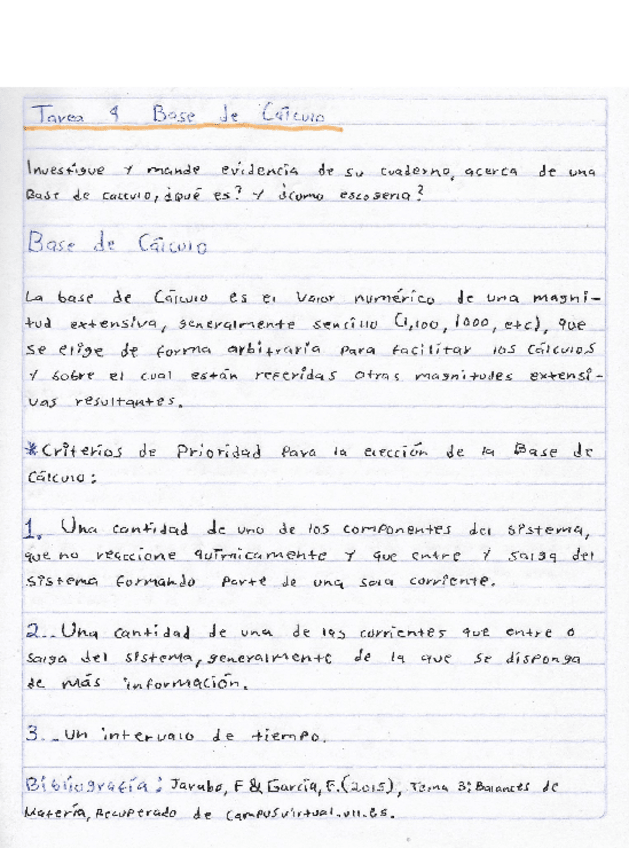 Tarea 4 Base de Cálculo
Investigue y mande evidencia de su cuaderno, acerca de una
Base de calculo, ¿qué es? y ¿como escogeria?
Base de Cálculo
La base de Cálculo es el valor numérico de una magni-
tud extensiva, generalmente sencillo (1,100, 1000, etc), que
se elige de forma arbitraria para facilitar los cálculos
y sobre el cual están referidas otras magnitudes extensi-
vas resultantes.
*Criterios de Prioridad para la elección de la Base de
Cálculo:
1. Una cantidad de uno de los componentes del sistema,
que no reaccione químicamente y que entre y salga del
sistema formando parte de una sola corriente.
2.- Una cantidad de una de las corrientes que entre o
salga del sistema, generalmente de la que se disponga
de más información.
3.- Un intervalo de tiempo.
Bibliografía: Jarabo, F & García, F.(2015), Tema 3: Balances de
Materia, Recuperado de campusvirtual.ull.es.